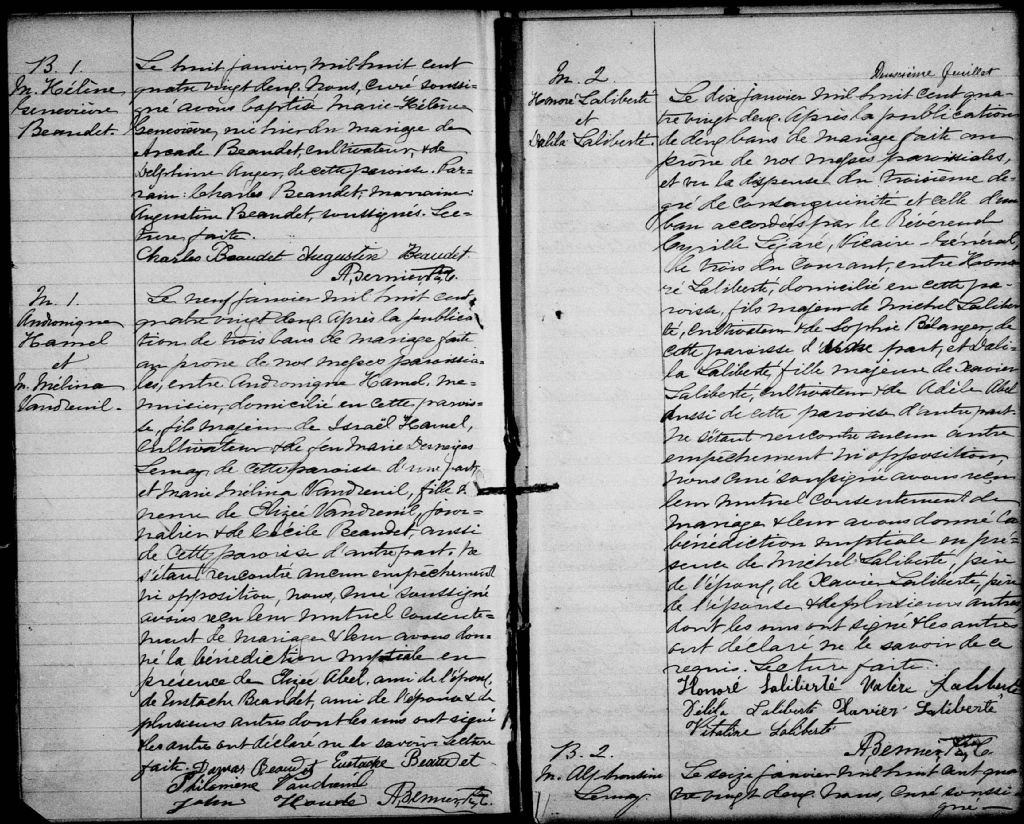 B. 1.
M. Hélène
Genevière
Beaudet.
Le huit janvier, mil huit cent
quatre vingt deux, Nous, curé soussi-
gné avons baptisé Marie-Hélène
Genevière, née hier du mariage de
Arcade Beaudet, cultivateur, & de
Delphine Auger, de cette paroisse. Par-
rain: Charles Beaudet, marraine:
Augustine Beaudet, soussignés. Lec-
ture faite.
Charles Beaudet Augustin Beaudet
A Bernier, Ptre, C.
M. 1.
Andronique
Hamel
et
M. Mélina
Vaudreuil.
Le neuf janvier mil huit cent
quatre vingt deux, Après la publica-
tion de trois bans de mariage faite
au prône de nos messes paroissia-
les, entre Andronique Hamel, me-
nuisier, domicilié en cette parois-
se, fils majeur de Israël Hamel,
cultivateur & de feu Marie
Lemay de cette paroisse d'une part,
et Marie Mélina Vaudreuil, fille
de Elizée Vaudreuil, jour-
nalier & de Cécile Beaudet, aussi
de cette paroisse d'autre part. Ne
s'étant rencontré aucun empêchement
ni opposition, nous, curé soussigné
avons reçu leur mutuel consente-
ment de mariage & leur avons don-
né la bénédiction nuptiale en
présence de Elizée Abel, ami de l'époux,
de Eustache Beaudet, ami de l'épouse & de
plusieurs autres dont les uns ont signé
& les autres ont déclaré ne le savoir. Lecture
faite. Damas Beaudet Eustache Beaudet
Philomene Vaudreuil
John Houde A Bernier, Ptre, C.
Deuxième feuillet
M. 2.
Honoré Laliberté
et
Dalila Laliberté.
Le dix janvier mil huit cent qua-
tre vingt deux, Après la publication
de deux bans de mariage faite au
prône de nos messes paroissiales,
et vu la dispense du troisième de-
gré de consanguinité et celle d'un
ban accordés par le Révérend
Cyrille Légaré, Vicaire-Général,
le trois du courant, entre Hono-
ré Laliberté, domicilié en cette pa-
roisse, fils majeur de Michel Laliber-
té, cultivateur & de Sophie Bélanger, de
cette paroisse d'une part, et Dali-
la Laliberté, fille majeure de Xavier
Laliberté, cultivateur & de Adèle Abel
aussi de cette paroisse d'autre part.
Ne s'étant rencontré aucun autre
empêchement ni opposition,
nous curé soussigné avons reçu
leur mutuel consentement de
mariage & leur avons donné la
bénédiction nuptiale en pré-
sence de Michel Laliberté, père
de l'époux, de Xavier Laliberté, père
de l'épouse & de plusieurs autres
dont les uns ont signé & les autres
ont déclaré ne le savoir de ce
requis. Lecture faite.
Honoré Laliberté Valère Laliberté
Délila Laliberté Xavier Laliberté
Vitaline Laliberté
A Bernier, Ptre, C
B. 2.
M. Alphonsine
Lemay.
Le seize janvier mil huit cent qua-
tre vingt deux, Nous, curé soussi-
gné